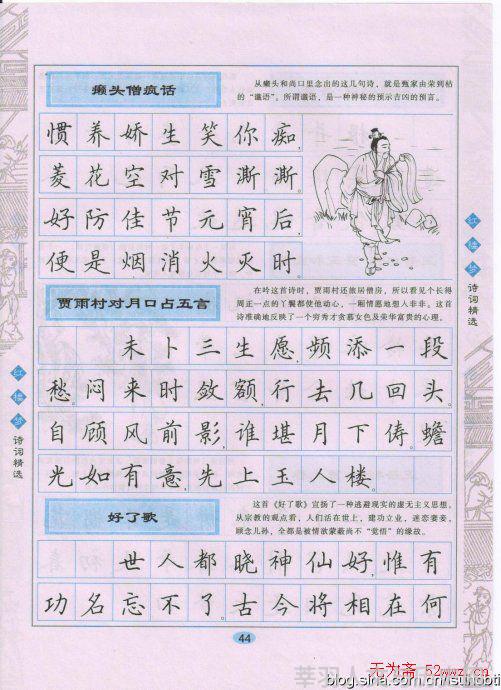 癞头僧疯话
从癞头和尚口里念出的这几句诗，就是甄家由荣到枯
的“谶语”。所谓谶语，是一种神秘的预示吉凶的预言。
惯养娇生笑你痴，
菱花空对雪澌澌。
好防佳节元宵后，
便是烟消火灭时
贾雨村对月口占五言
在吟这首诗时，贾雨村还旅居僧房，所以看见个长得
周正一点的丫鬟都使他动心，一厢情愿地想人非非。这首
诗准确地反映了一个穷秀才贪慕女色及荣华富贵的心理。
未卜三生愿，频添一段
愁。闷来时敛额，行去几回头。
自顾风前影，谁堪月下俦。蟾
光如有意，先上玉人楼。
好了歌
这首《好了歌》宣扬了一种逃避现实的虚无主义思想。
从宗教的观点看，人们活在世上，建功立业，迷恋妻妾，
顾念儿孙，全都是被情欲蒙蔽尚不“觉悟”的缘故。
世人都晓神仙好，惟有
功名忘不了古今将相在何
44
红楼梦诗词精选
红楼梦诗词精选
无为斋 52wwz.cn